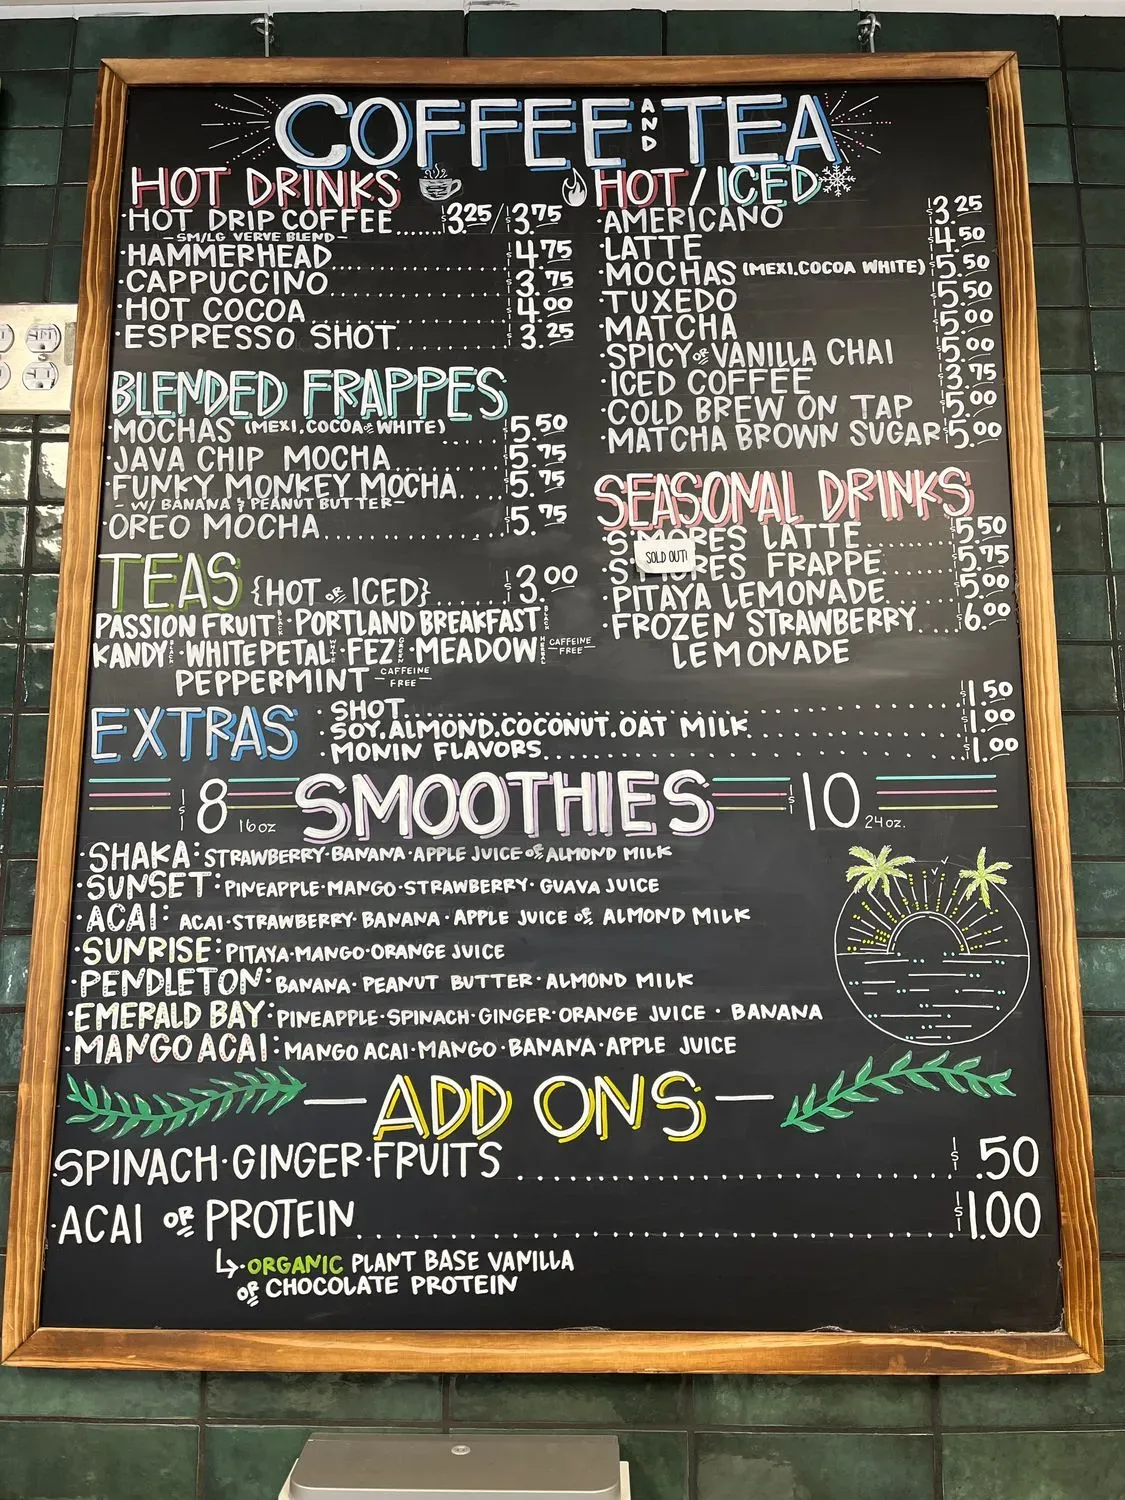 COFFEE AND TEA
HOT DRINKS
·HOT DRIP COFFEE......$3.25/$3.75
-SM/LG VERVE BLEND-
·HAMMERHEAD........$4.75
·CAPPUCCINO........$3.75
·HOT COCOA........$4.00
·ESPRESSO SHOT........$3.25
BLENDED FRAPPES
·MOCHAS (MEXI.COCOA OR WHITE)....$5.50
·JAVA CHIP MOCHA........$5.75
·FUNKY MONKEY MOCHA....$5.75
- W/ BANANA & PEANUT BUTTER-
·OREO MOCHA........$5.75
TEAS {HOT OR ICED} $3.00
PASSION FRUIT BLACK·PORTLAND BREAKFAST BLACK
KANDY BLACK·WHITE PETAL WHITE·FEZ GREEN·MEADOW HERBAL -CAFFEINE FREE-
PEPPERMINT -CAFFEINE FREE-
HOT/ICED
·AMERICANO $3.25
·LATTE $4.50
·MOCHAS (MEXI.COCOA WHITE) $5.50
·TUXEDO $5.50
·MATCHA $5.00
·SPICY OR VANILLA CHAI $5.00
·ICED COFFEE $3.75
·COLD BREW ON TAP $5.00
·MATCHA BROWN SUGAR $5.00
SEASONAL DRINKS
·S'MORES LATTE........$5.50
SOLD OUT!
·S'MORES FRAPPE......$5.75
·PITAYA LEMONADE......$5.00
·FROZEN STRAWBERRY....$6.00
LEMONADE
EXTRAS
·SHOT........$1.50
·SOY.ALMOND.COCONUT.OAT MILK........$1.00
·MONIN FLAVORS........$1.00
$8 16oz SMOOTHIES $10 24oz.
·SHAKA: STRAWBERRY·BANANA·APPLE JUICE OR ALMOND MILK
·SUNSET: PINEAPPLE·MANGO·STRAWBERRY·GUAVA JUICE
·ACAI: ACAI·STRAWBERRY·BANANA·APPLE JUICE OR ALMOND MILK
·SUNRISE: PITAYA·MANGO·ORANGE JUICE
·PENDLETON: BANANA·PEANUT BUTTER·ALMOND MILK
·EMERALD BAY: PINEAPPLE·SPINACH·GINGER·ORANGE JUICE·BANANA
·MANGO ACAI: MANGO ACAI·MANGO·BANANA·APPLE JUICE
-ADD ONS-
·SPINACH·GINGER·FRUITS........$.50
·ACAI OR PROTEIN........$1.00
·ORGANIC PLANT BASE VANILLA
OR CHOCOLATE PROTEIN